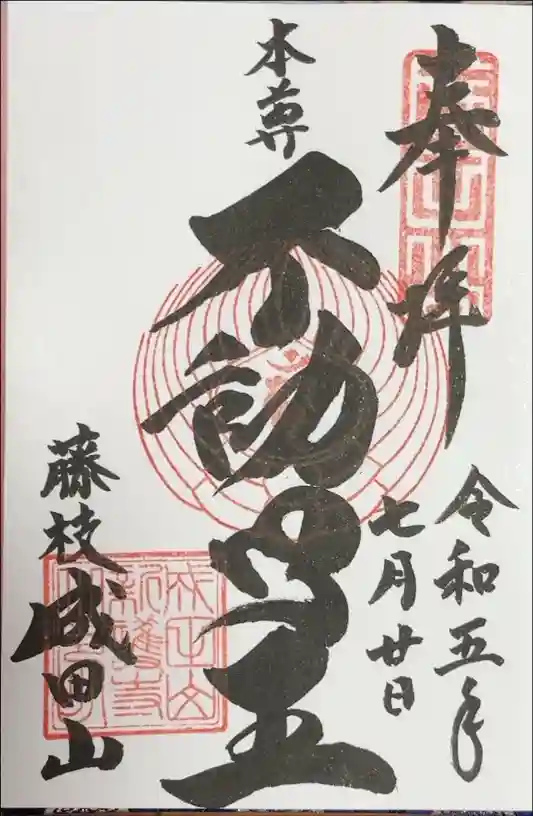 奉拝
令和五年
七月廿日
本尊
不動明王
藤枝成田山